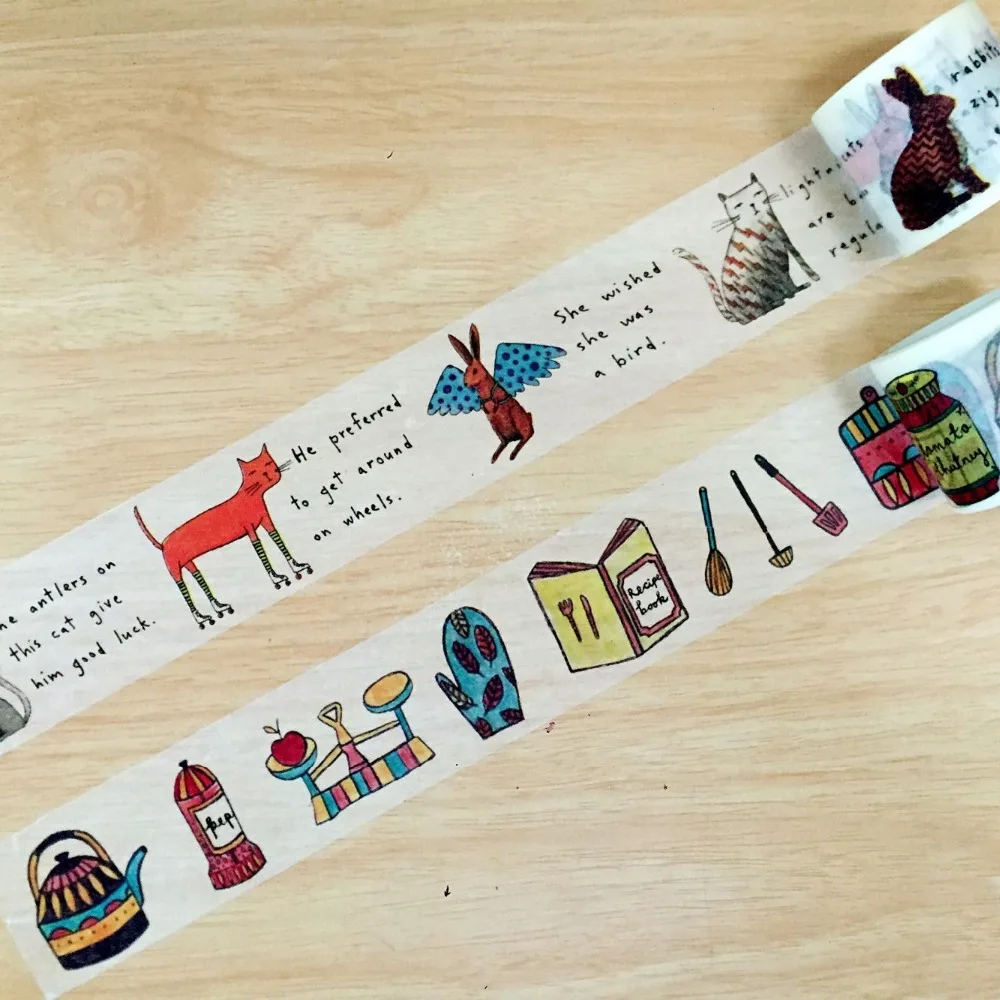 antlers on
this cat give
him good luck.
He preferred
to get around
on wheels.
She wished
she was
a bird.
are
rabbits
zig
pep
Recipe
book
tomato
chutney